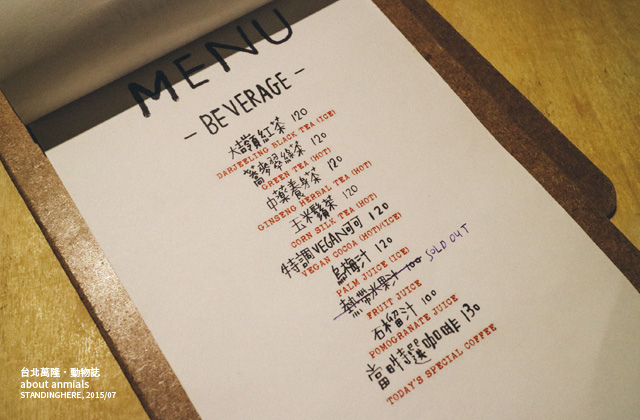 MENU
- BEVERAGE -
大吉嶺紅茶 120
DARJEELING BLACK TEA (ICE)
蕎麥翠綠茶 120
GREEN TEA (HOT)
中藥養身茶 120
GINSENG HERBAL TEA (HOT)
玉米鬚茶 120
CORN SILK TEA (HOT)
特調VEGAN可可 120
VEGAN COCOA (HOT)/(ICE)
烏梅汁 120
PALM JUICE (ICE)
熱帶水果汁 100 SOLD OUT
FRUIT JUICE
石榴汁 100
POMOGRANATE JUICE
當時選咖啡 130
TODAY'S SPECIAL COFFEE
台北萬隆・動物誌
about anmials
STANDINGHERE, 2015/07